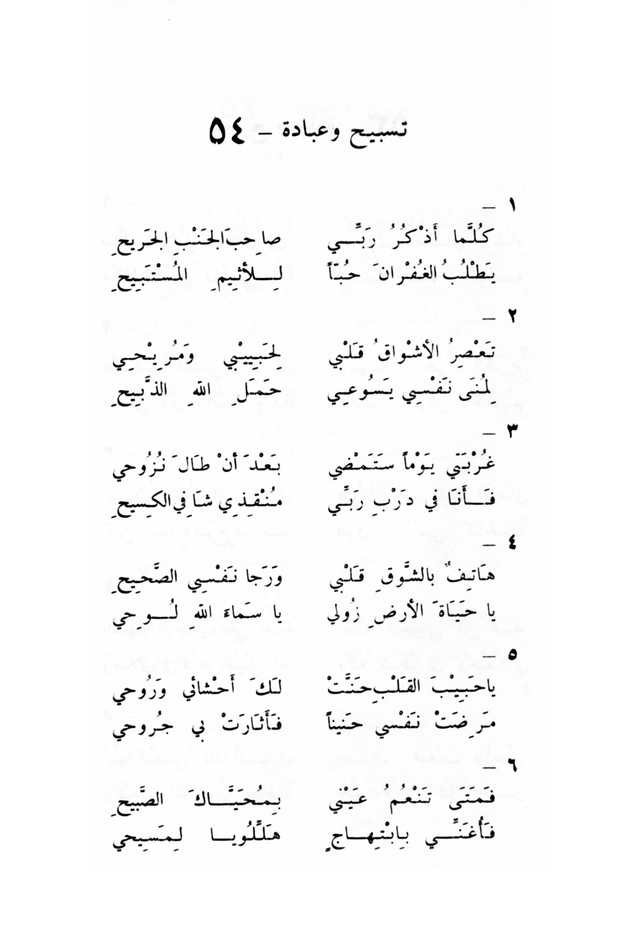 ٥٤ – تسبيح وعبادة
١ –
كُلَّما أذْكُرُ رَبِّــي صاحِبَ الجَنْبِ الجَريحِ
يَطْلُبُ الغُفْرانَ حُبّاً لِــلأثِيمِ المُسْتَبِيحِ
٢ –
تَعْصِرُ الأشْواقُ قَلْبي لِحَبِيبْي وَمُرِيْحِي
لِمُنَى نَفْسِي يَسُوعِي حَمَلِ اللهِ الذَّبِيحِ
٣ –
غُرْبَتي يَوْماً سَتَمْضي بَعْدَ أنْ طالَ نُزُوحي
فَــأنا في دَرْبِ رَبِّي مُنْقِذي شافي الكسِيحِ
٤ –
هَاتِفٌ بالشَّوْقِ قَلْبي وَرَجا نَفْسي الصَّحيحِ
يا حَيَاةَ الأرضِ زُولي يا سَماءَ اللهِ لُــوحِي
٥ –
ياحَبِيْبَ القَلْبِ حَنَّتْ لَكَ أحْشائي وَرُوحي
مَرِضَتْ نَفْسي حَنيناً فَأثارَتْ بي جُروحي
٦ –
فَمَتَى تَنْعُمُ عَيْني بِمُحَيَّــاكَ الصَّبيحِ
فَأُغَنِّــي بِابْتِهــاجٍ هَلِّلُويــا لِمَسِيحي